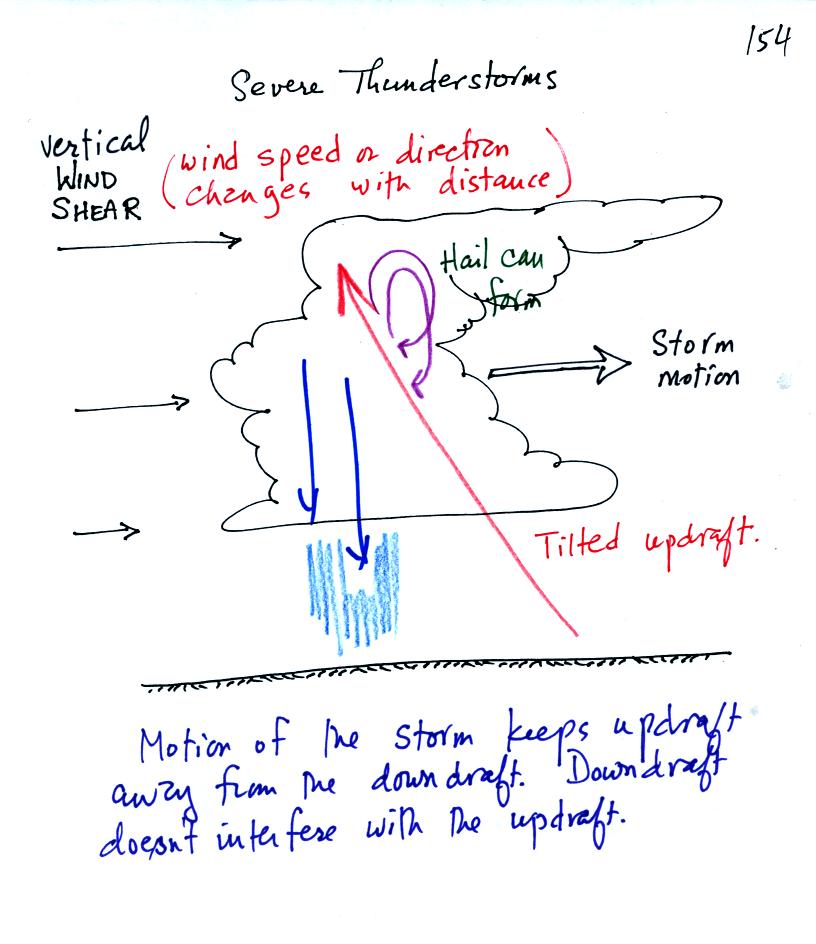 154
Severe Thunderstorms
vertical
WIND
SHEAR
(wind speed or direction
changes with distance)
Hail can
form
Storm
motion
Tilted updraft.
Motion of the storm keeps updraft
away from the downdraft. Downdraft
doesn't interfere with the updraft.